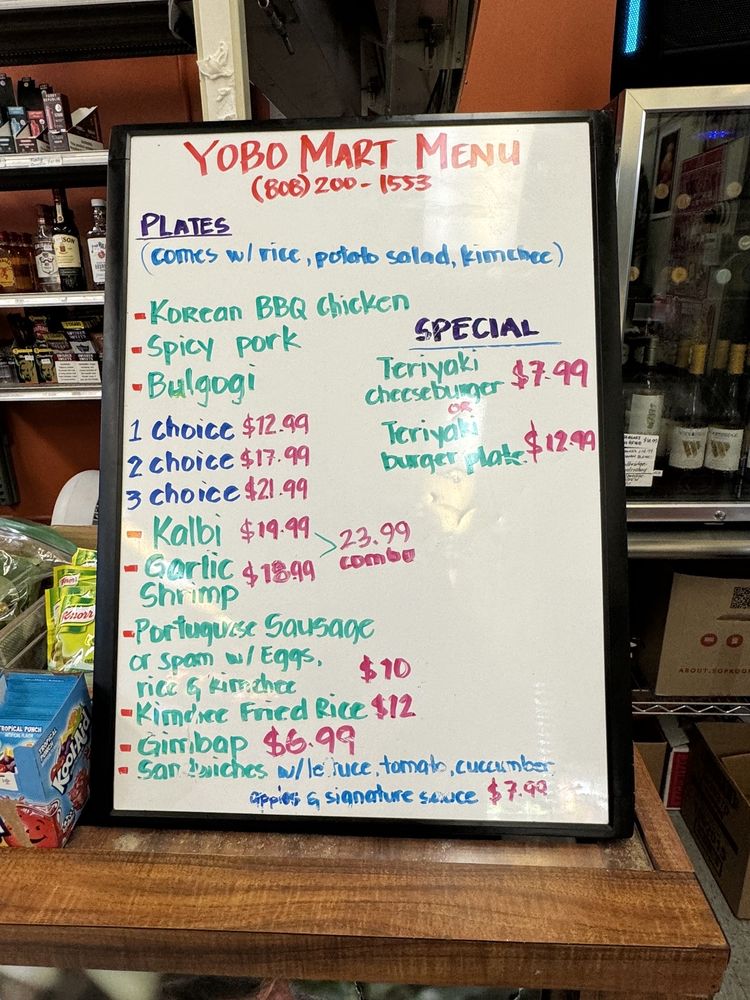 YOBO MART MENU
(808) 200-1553
PLATES
(comes w/ rice, potato salad, kimchee)
- Korean BBQ Chicken
- Spicy pork
- Bulgogi
1 choice $12.99
2 choice $17.99
3 choice $21.99
- Kalbi $19.99
- Garlic Shrimp $18.99
23.99
combo
- Portuguese Sausage
or spam w/ Eggs,
rice & kimchee $10
- Kimchee Fried Rice $12
- Gimbap $6.99
- Sandwiches w/ le uce, tomato, cucumber
apples & signature sauce $7.99
SPECIAL
Teriyaki
cheeseburger $7.99
OR
Teriyaki
burger plate $12.99
Knorr
TROPICAL PUNCH
Kool-Aid